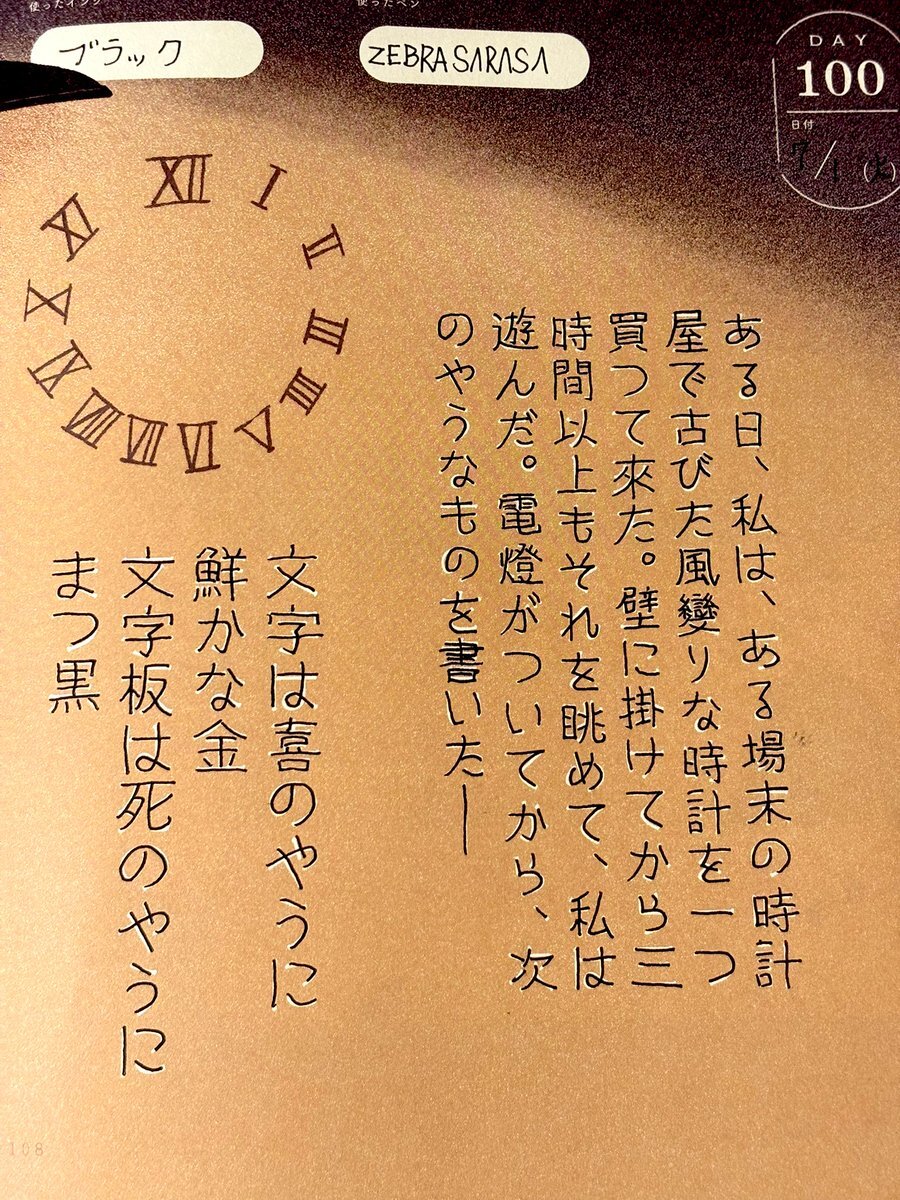 使ったインク
使ったペン
ブラック
ZEBRA SARASA
DAY
100
日付
7/1(火)
XII
I
II
III
IIII
V
VI
VII
VIII
IX
X
XI
ある日、私は、ある場末の時計
屋で古びた風變りな時計を一つ
買つて來た。壁に掛けてから三
時間以上もそれを眺めて、私は
遊んだ。電燈がついてから、次
のやうなものを書いた―
文字は喜のやうに
鮮かな金
文字板は死のやうに
まつ黒
108